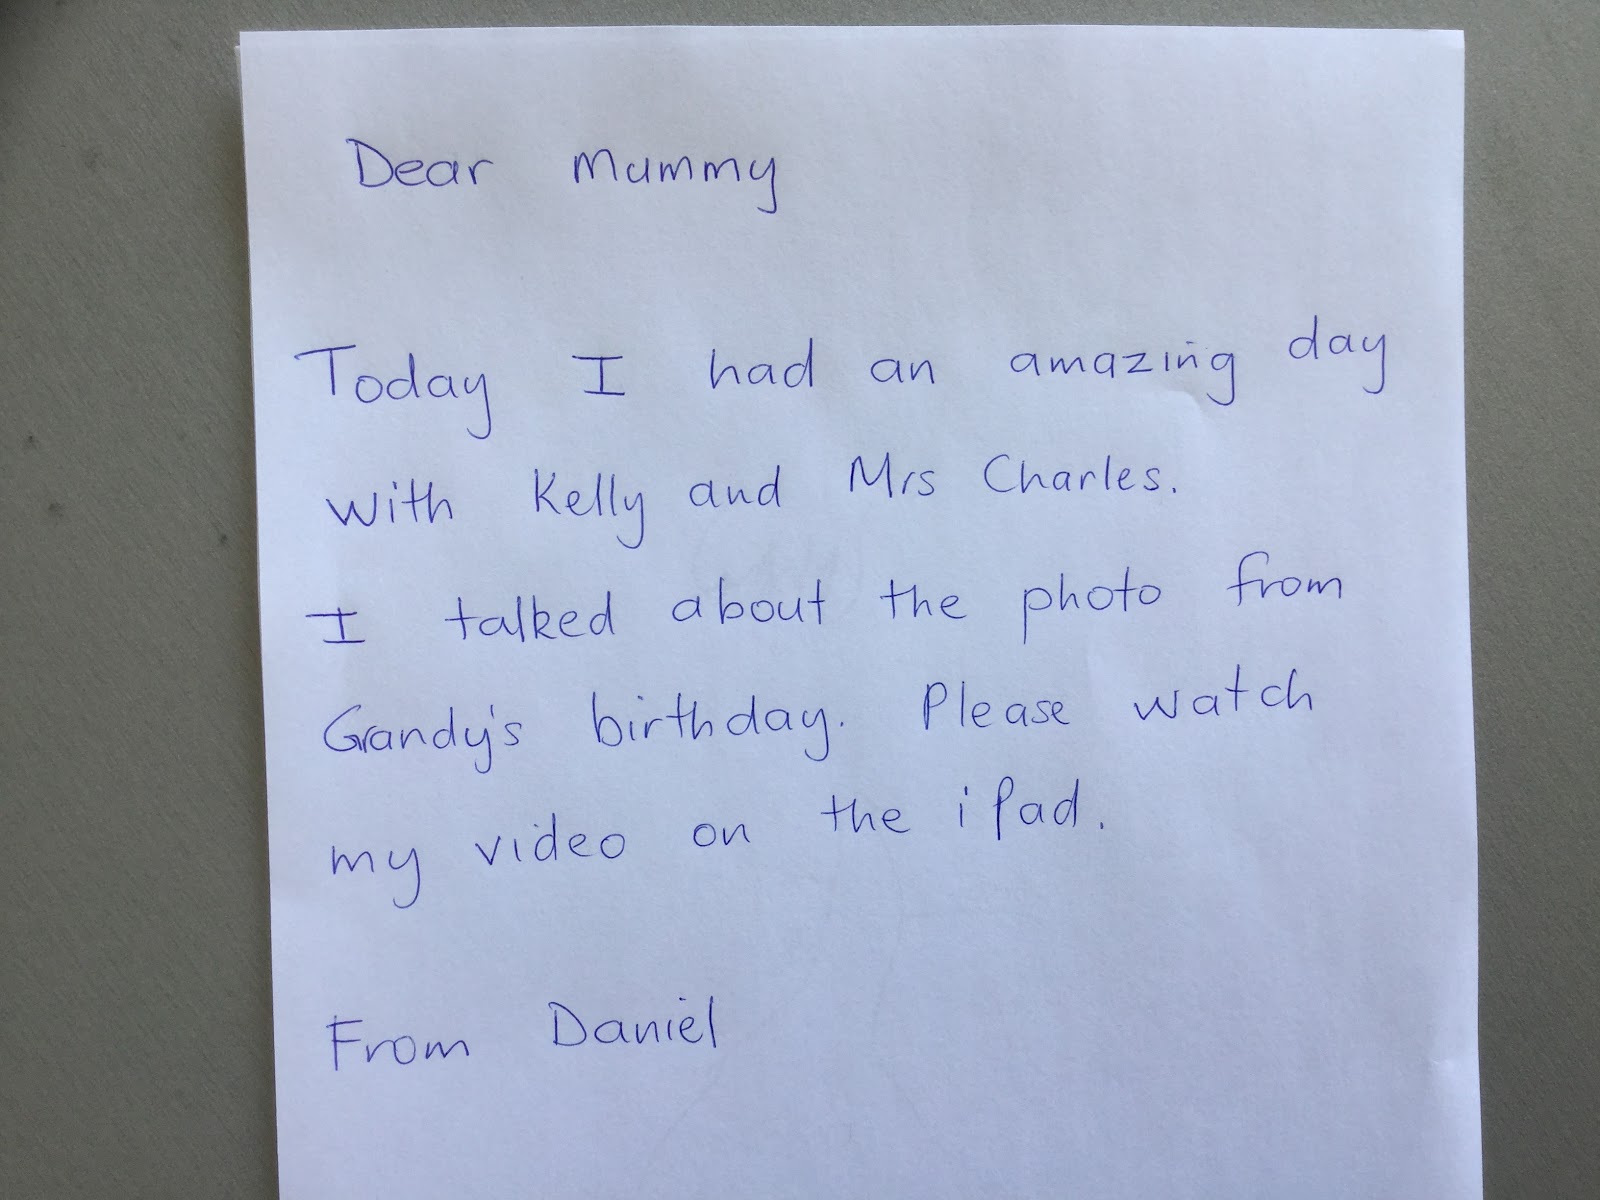 Dear Mummy
Today I had an amazing day
with Kelly and Mrs Charles.
I talked about the photo from
Grandy's birthday. Please watch
my video on the iPad.
From Daniel